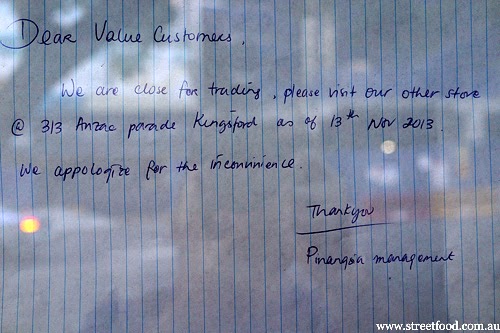 Dear Value Customers,
We are close for trading, please visit our other store
@ 313 Anzac parade Kingsford as of 13th Nov 2013.
We appologize for the inconvinience.
Thankyou
Pinangsia management
www.streetfood.com.au